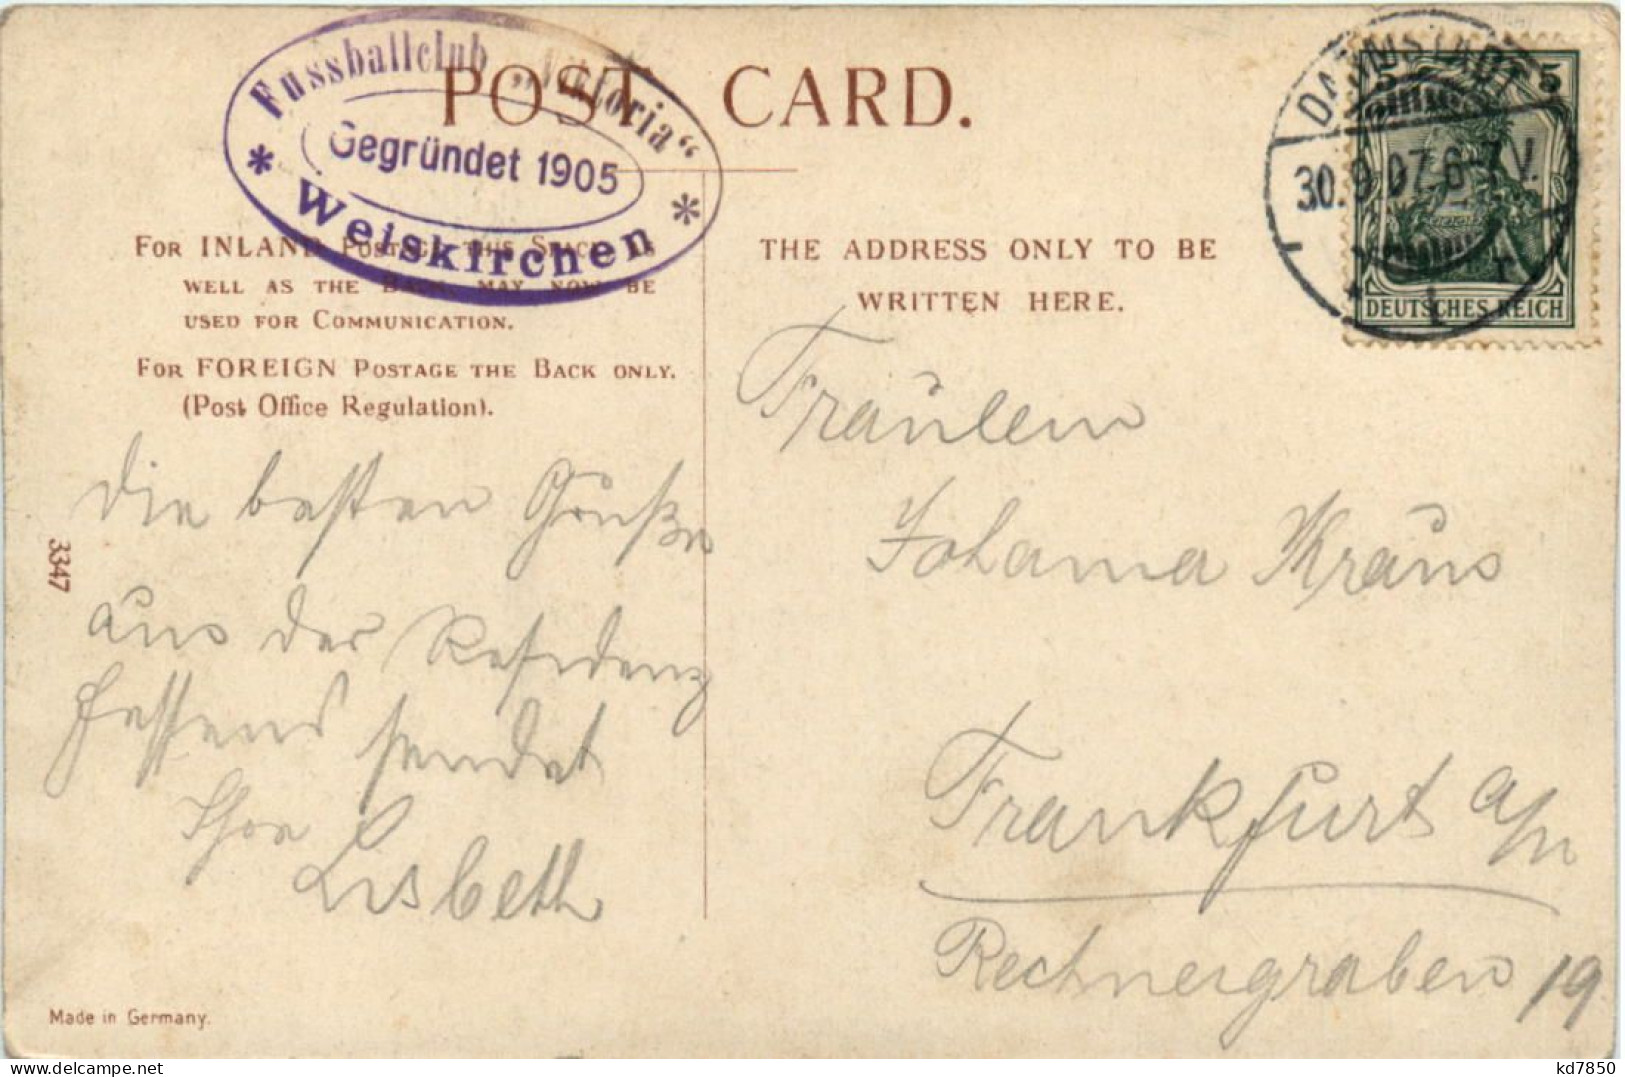 Fussballclub „Viktoria“
Gegründet 1905
* Weiskirchen *
POST CARD.
DARMSTADT
30.9.07.6-7V.
5
DEUTSCHES REICH
FOR INLAND POSTAGE THIS SPACE, AS
WELL AS THE BACK, MAY NOW BE
USED FOR COMMUNICATION.
FOR FOREIGN POSTAGE THE BACK ONLY.
(Post Office Regulation).
THE ADDRESS ONLY TO BE
WRITTEN HERE.
die besten Grüße
aus der Residenz
Hessens sendet
Ihre
Lisbeth
Fräulein
Johanna Kraus
Frankfurt a/m
Rechneigraben 19
3347
Made in Germany.
kd7850